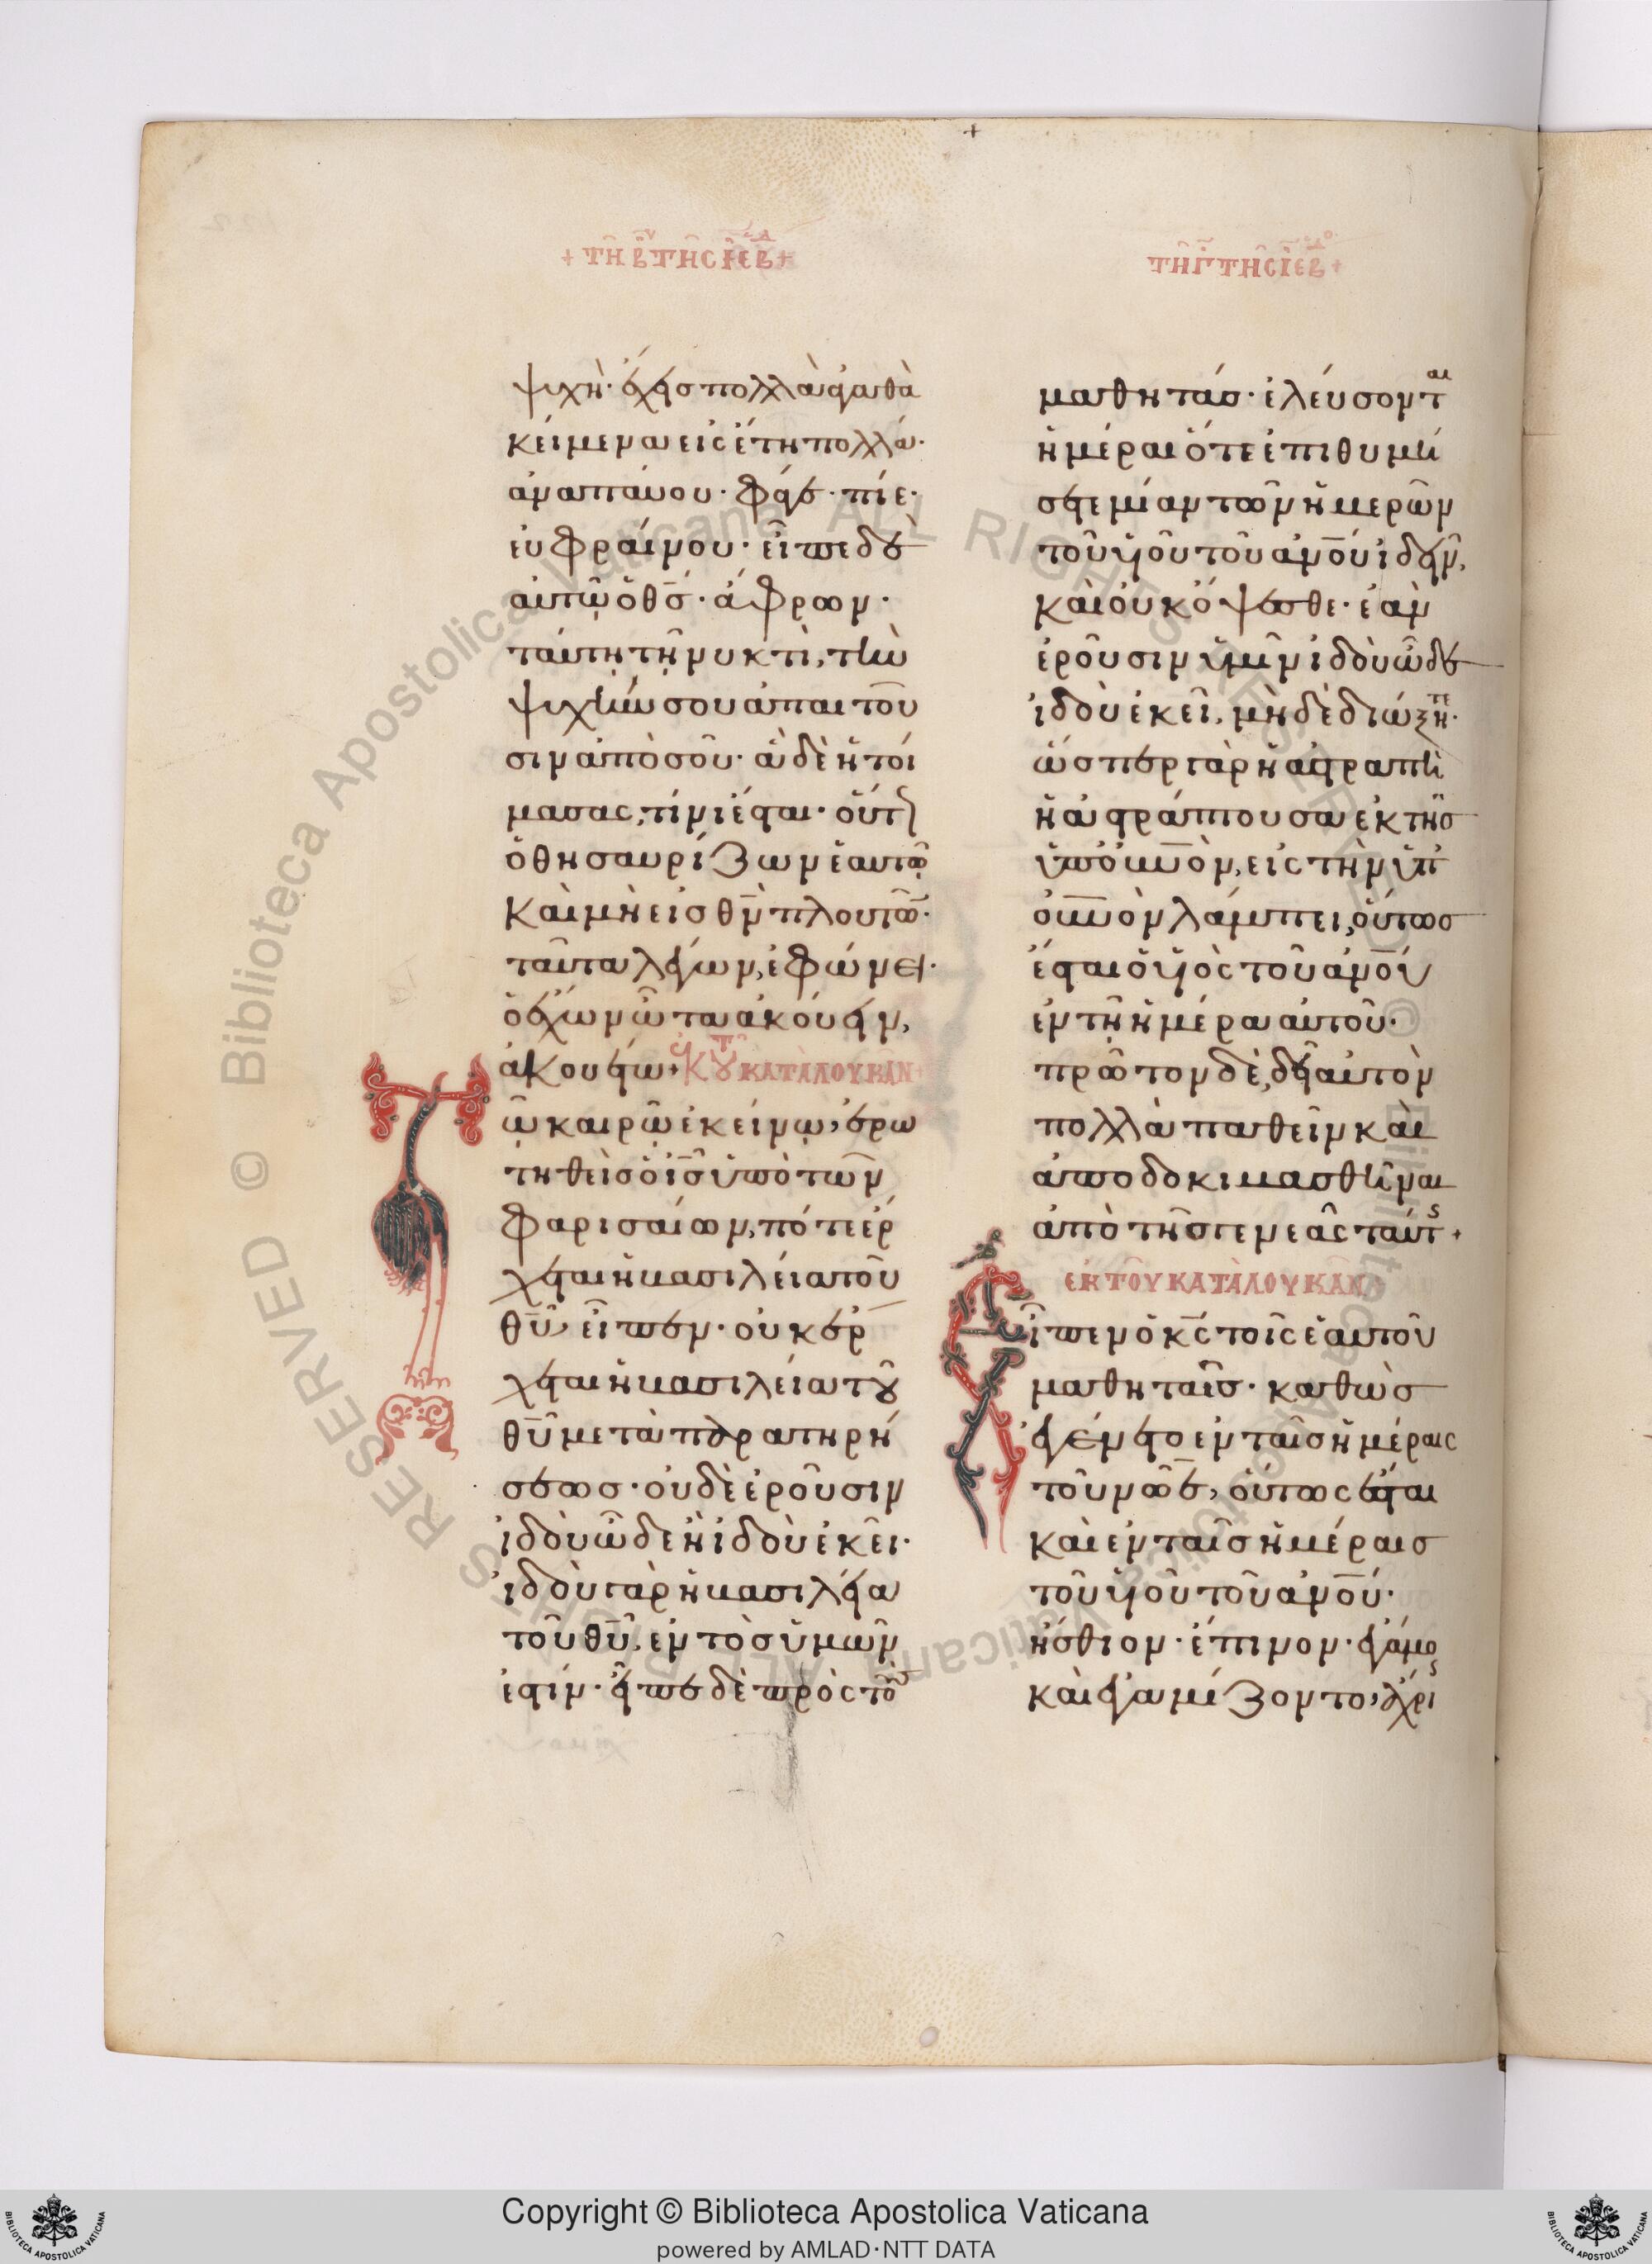 + τῆ β τῆς ι ἑβδ +
ψυχὴ· ἔχεις πολλὰ ἀγαθὰ
κείμενα εἰς ἔτη πολλά·
ἀναπαύου· φάγε· πίε·
εὐφραίνου· εἶπε δὲ
αὐτῷ ὁ θς· ἄφρων·
ταύτῃ τῇ νυκτὶ, τὴν
ψυχήν σου ἀπαιτοῦ
σιν ἀπὸ σοῦ· ἃ δὲ ἡτοί
μασας, τίνι ἔσται· οὕτως
ὁ θησαυρίζων ἑαυτῷ
καὶ μὴ εἰς θν πλουτῶν·
ταῦτα λέγων, ἐφώνει·
ὁ ἔχων ὦτα ἀκούειν,
ἀκουέτω + ἐκ τοῦ κατὰ λουκᾶν +
Τῷ καιρῷ ἐκείνῳ, ἐρω
τηθεὶς ὁ ις ὑπὸ τῶν
φαρισαίων, πότε ἔρ
χεται ἡ βασιλεία τοῦ
θυ, εἶπεν· οὐκ ἔρ
χεται ἡ βασιλεία τοῦ
θυ μετὰ παρατηρή
σεως· οὐδὲ ἐροῦσιν
ἰδοὺ ὧδε ἢ ἰδοὺ ἐκεῖ·
ἰδοὺ γὰρ ἡ βασιλεία
τοῦ θυ, ἐντὸς ὑμῶν
ἐστίν· εἶπε δὲ πρὸς τοὺς
τῆ γ τῆς ι ἑβδο +
μαθητάς· ἐλεύσονται
ἡμέραι ὅτε ἐπιθυμή
σετε μίαν τῶν ἡμερῶν
τοῦ υἱοῦ τοῦ ἀνου ἰδεῖν,
καὶ οὐκ ὄψεσθε· ἐὰν
ἐροῦσιν ὑμῖν ἰδοὺ ὧδε
ἰδοὺ ἐκεῖ, μὴ δὲ διώξητε·
ὥσπερ γὰρ ἡ ἀστραπὴ
ἡ ἀστράπτουσα ἐκ τῆς
ὑπὸ οὐνὸν, εἰς τὴν ὑπ
οὐνὸν λάμπει, οὕτως
ἔσται ὁ υἱὸς τοῦ ἀνου
ἐν τῇ ἡμέρα αὐτοῦ·
πρῶτον δὲ, δεῖ αὐτὸν
πολλὰ παθεῖν καὶ
ἀποδοκιμασθῆναι
ἀπὸ τῆς γενεᾶς ταύτης +
ἐκ τοῦ κατὰ λουκᾶν
Εἶπεν ὁ κς τοῖς ἑαυτοῦ
μαθηταῖς· καθὼς
ἐγένετο ἐν ταῖς ἡμέραις
τοῦ νῶε, οὕτως ἔσται
καὶ ἐν ταῖς ἡμέραις
τοῦ υἱοῦ τοῦ ἀνου·
ἤσθιον· ἔπινον· ἐγάμουν
καὶ ἐγαμίζοντο, ἄχρις
Copyright © Biblioteca Apostolica Vaticana
powered by AMLAD·NTT DATA